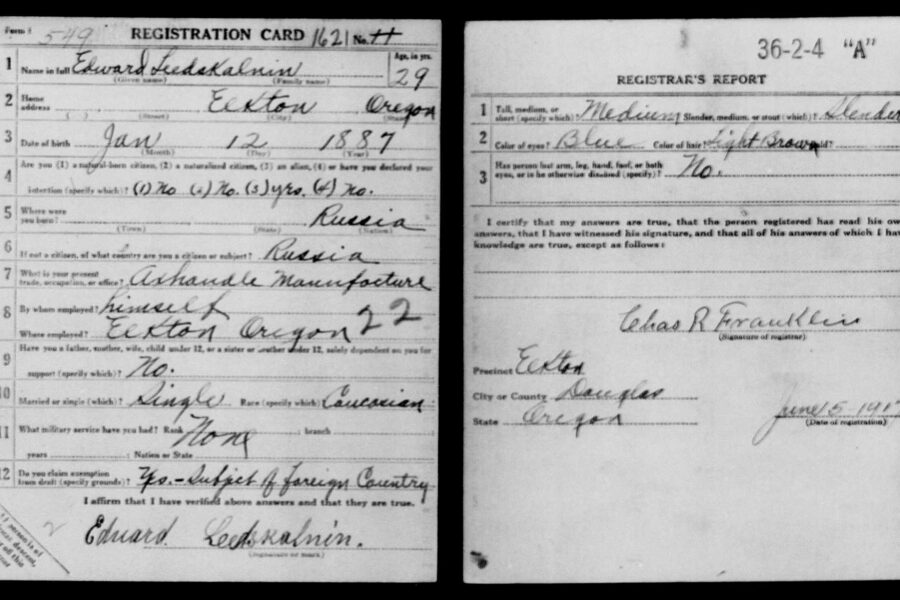 Form 1 549 REGISTRATION CARD 1621 No. 11
1 Name in full Edward Leedskalnin Age, in yrs. 29
(Given name) (Family name)
2 Home address Eekton Oregon
(Street) (City) (State)
3 Date of birth Jan 12 1887
(Month) (Day) (Year)
4 Are you (1) a natural-born citizen, (2) a naturalized citizen, (3) an alien, (4) or have you declared your
intention (specify which)? (1) No (2) No. (3) yrs. (4) No.
5 Where were you born? Russia
(Town) (State) (Nation)
6 If not a citizen, of what country are you a citizen or subject? Russia
7 What is your present trade, occupation, or office? Axhandle Manufacture
8 By whom employed? himself
Where employed? Eekton Oregon 22
9 Have you a father, mother, wife, child under 12, or a sister or brother under 12, solely dependent on you for
support (specify which)? No.
10 Married or single (which)? Single Race (specify which)? Caucasian
11 What military service have you had? Rank None ; branch
years ; Nation or State
12 Do you claim exemption from draft (specify grounds)? Yes.-Subject of foreign Country
I affirm that I have verified above answers and that they are true.
2 Edward Leedskalnin.
(Signature or mark)
36-2-4 "A"
REGISTRAR'S REPORT
1 Tall, medium, or short (specify which)? Medium Slender, medium, or stout (which)? Slender
2 Color of eyes? Blue Color of hair? Light Brown
3 Has person lost arm, leg, hand, foot, or both
eyes, or is he otherwise disabled (specify)? No.
I certify that my answers are true, that the person registered has read his ow
answers, that I have witnessed his signature, and that all of his answers of which I hav
knowledge are true, except as follows:
Chas R Franklin
(Signature of registrar)
Precinct Eekton
City or County Douglas
State Oregon June 5 191
(Date of registration)